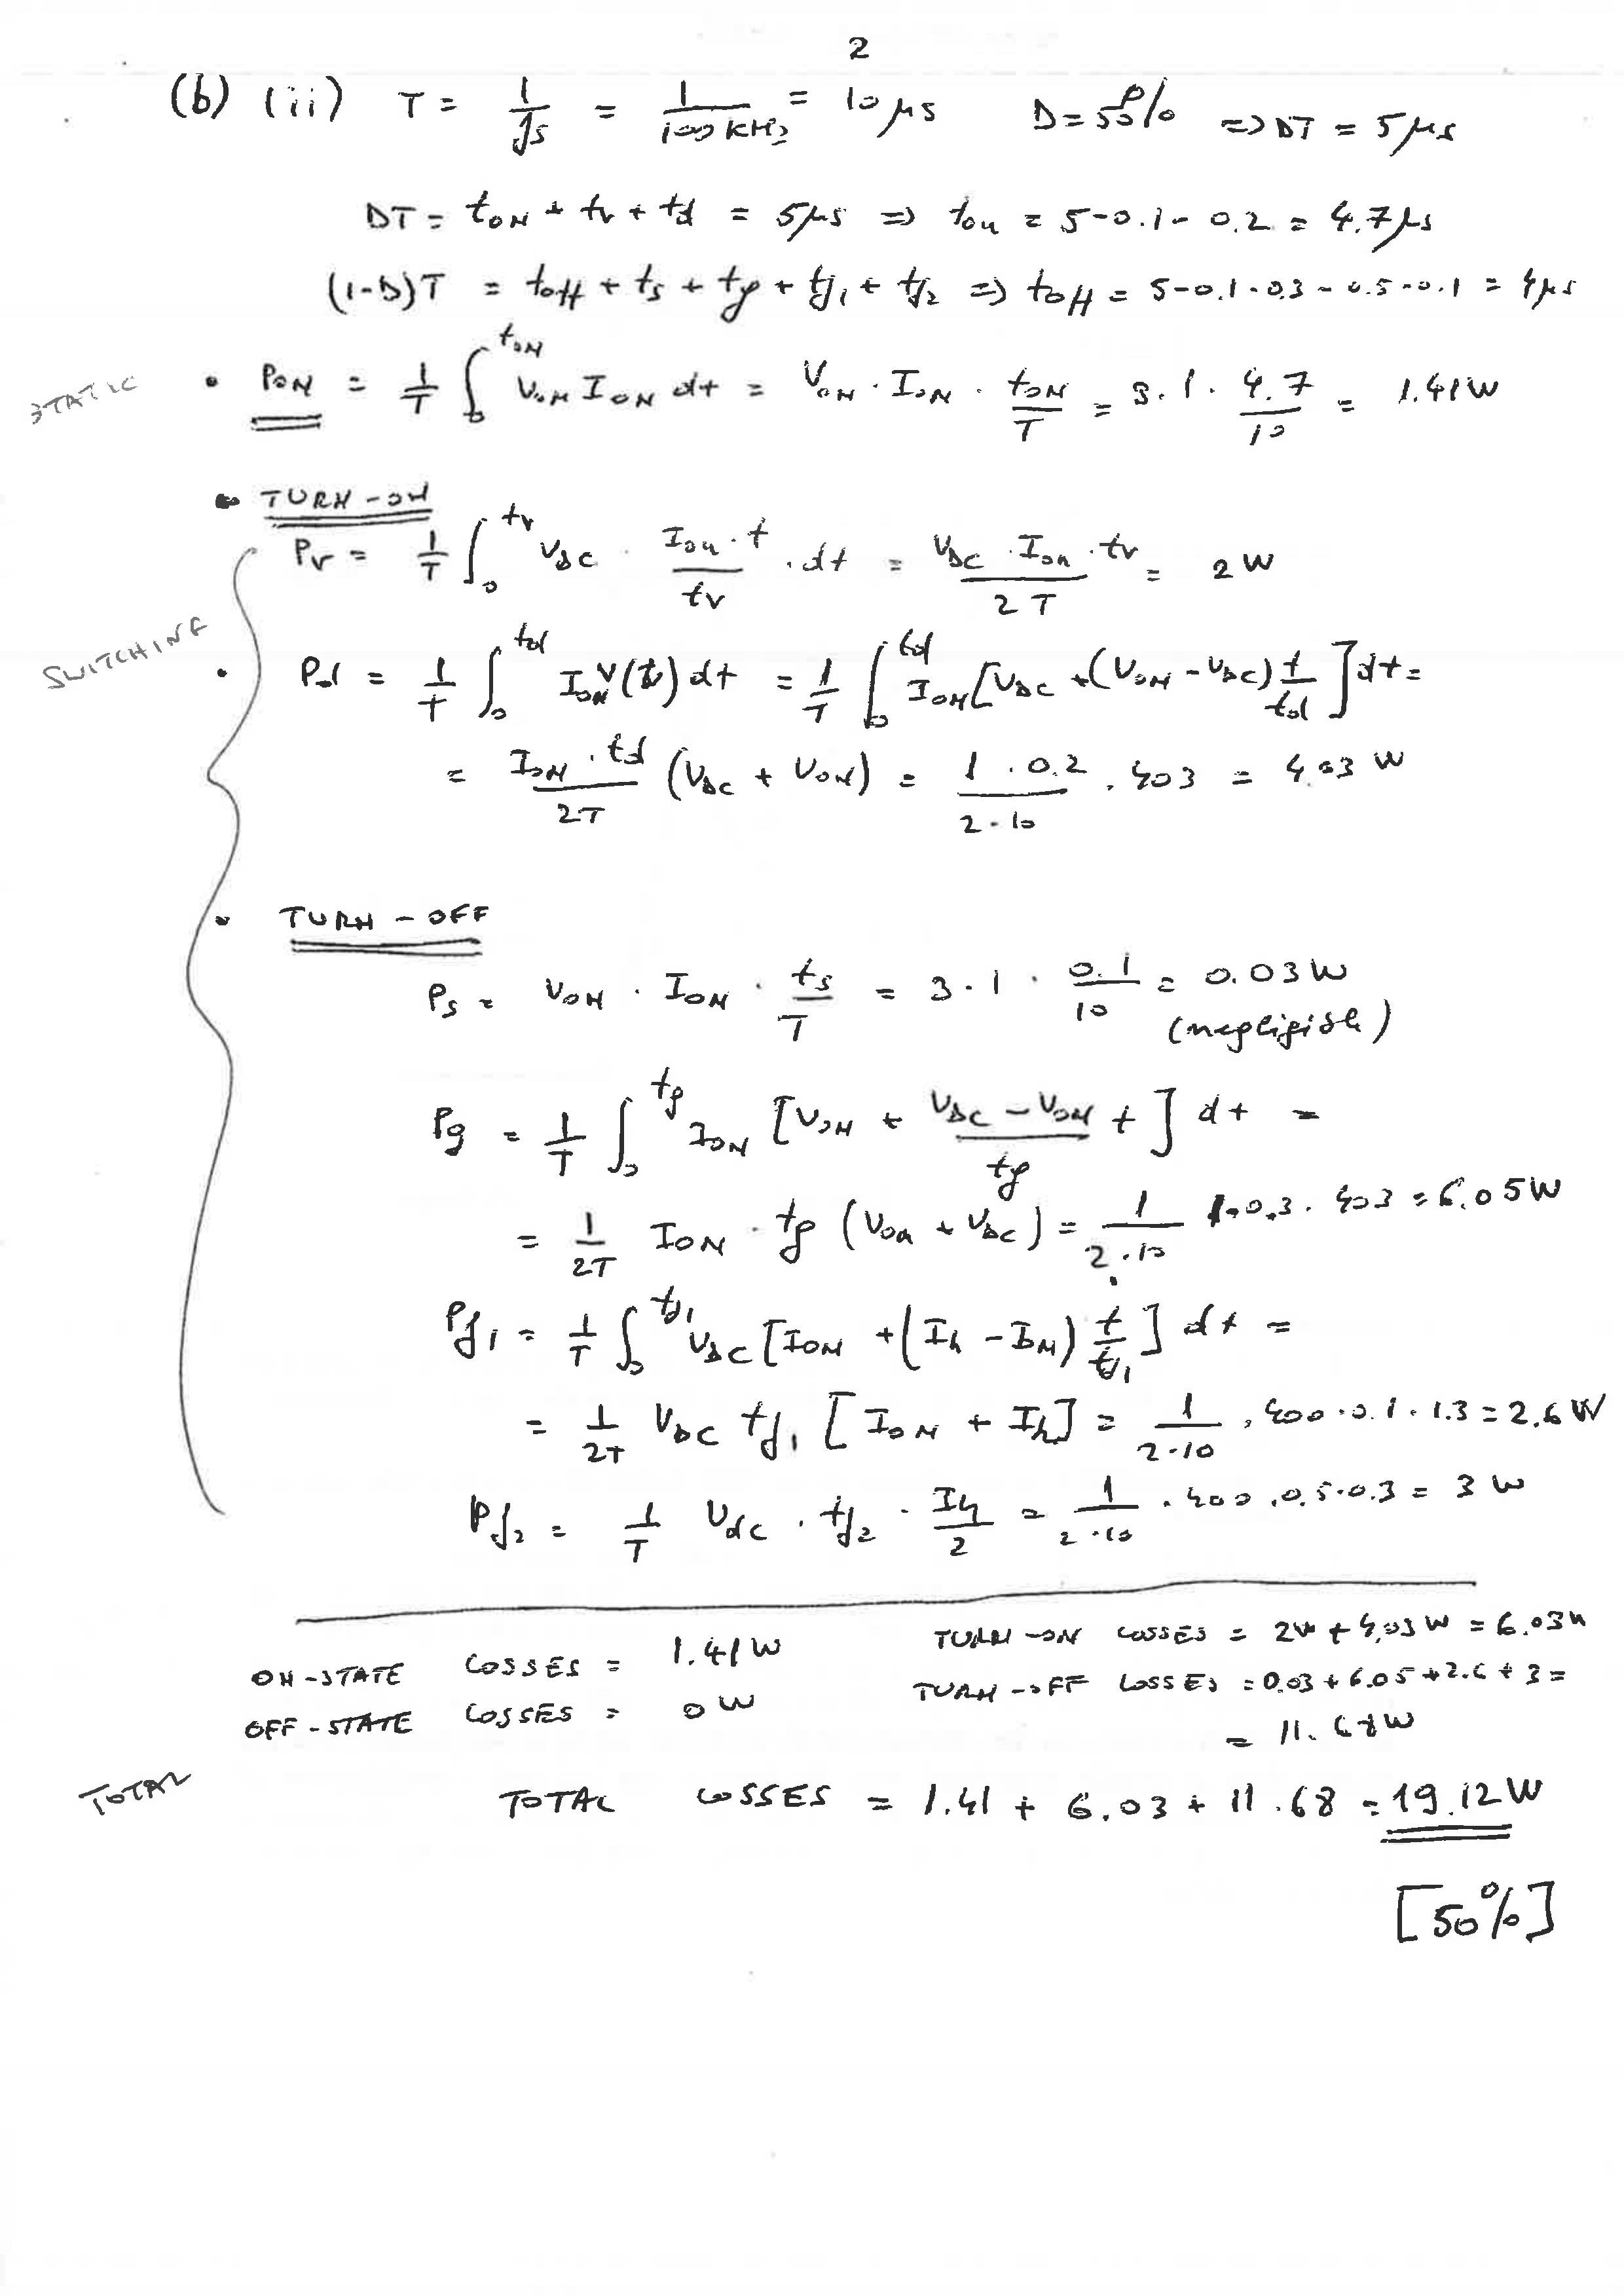 2
(b) (ii) T = 1/fs = 1/100 kHz = 10 μs D = 50% => DT = 5 μs
DT = tON + tr + td = 5 μs => tON = 5 - 0.1 - 0.2 = 4.7 μs
(1-D)T = toff + ts + tg + tf1 + tf2 => toff = 5 - 0.1 - 0.3 - 0.5 - 0.1 = 4 μs
STATIC • PON = 1/T ∫₀^tON VON ION dt = VON · ION · tON/T = 3 · 1 · 4.7/10 = 1.41 W
• TURN-ON
Pr = 1/T ∫₀^tr VDC · ION · t/tr · dt = VDC · ION · tr/2T = 2 W
SWITCHING • Pd = 1/T ∫₀^td ION V(t) dt = 1/T ∫₀^td ION [VDC + (VON - VDC) t/td] dt =
= ION · td/2T (VDC + VON) = 1 · 0.2/2 · 10 · 403 = 4.03 W
• TURN-OFF
Ps = VON · ION · ts/T = 3 · 1 · 0.1/10 = 0.03 W
(negligible)
Pg = 1/T ∫₀^tg ION [VON + VDC - VON/tg t] dt =
= 1/2T ION · tg (VON + VDC) = 1/2 · 10 1 · 0.3 · 403 = 6.05 W
Pf1 = 1/T ∫₀^tf1 VDC [ION + (Ih - ION) t/tf1] dt =
= 1/2T VDC tf1 [ION + Ih] = 1/2 · 10 · 400 · 0.1 · 1.3 = 2.6 W
Pf2 = 1/T Vdc · tf2 · Ih/2 = 1/2 · 10 · 400 · 0.5 · 0.3 = 3 W
ON-STATE LOSSES = 1.41 W TURN-ON LOSSES = 2W + 4.03 W = 6.03 W
OFF-STATE LOSSES = 0 W TURN-OFF LOSSES = 0.03 + 6.05 + 2.6 + 3 =
= 11.68 W
TOTAL TOTAL LOSSES = 1.41 + 6.03 + 11.68 = 19.12 W
[50%]